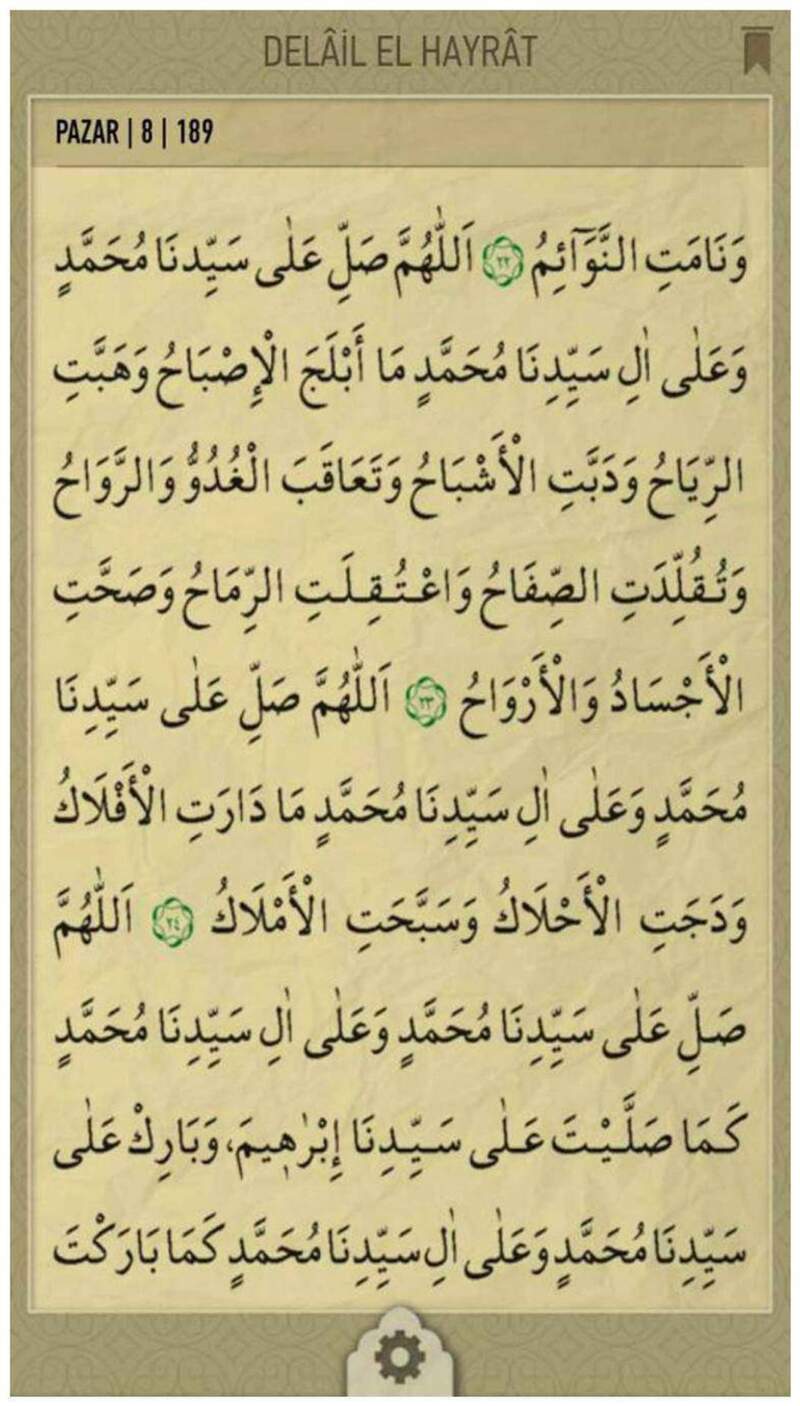 DELÂİL EL HAYRÂT
PAZAR | 8 | 189
وَنَامَتِ النَّوَآئِمُ ٢٢ اَللّٰهُمَّ صَلِّ عَلٰى سَيِّدِنَا مُحَمَّدٍ
وَعَلٰى اٰلِ سَيِّدِنَا مُحَمَّدٍ مَا أَبْلَجَ الْإِصْبَاحُ وَهَبَّتِ
الرِّيَاحُ وَدَبَّتِ الْأَشْبَاحُ وَتَعَاقَبَ الْغُدُوُّ وَالرَّوَاحُ
وَتُقُلِّدَتِ الصِّفَاحُ وَاعْتُقِلَتِ الرِّمَاحُ وَصَحَّتِ
الْأَجْسَادُ وَالْأَرْوَاحُ ٢٣ اَللّٰهُمَّ صَلِّ عَلٰى سَيِّدِنَا
مُحَمَّدٍ وَعَلٰى اٰلِ سَيِّدِنَا مُحَمَّدٍ مَا دَارَتِ الْأَفْلَاكُ
وَدَجَتِ الْأَحْلَاكُ وَسَبَّحَتِ الْأَمْلَاكُ ٢٤ اَللّٰهُمَّ
صَلِّ عَلٰى سَيِّدِنَا مُحَمَّدٍ وَعَلٰى اٰلِ سَيِّدِنَا مُحَمَّدٍ
كَمَا صَلَّيْتَ عَلٰى سَيِّدِنَا إِبْرٰهِيمَ، وَبَارِكْ عَلٰى
سَيِّدِنَا مُحَمَّدٍ وَعَلٰى اٰلِ سَيِّدِنَا مُحَمَّدٍ كَمَا بَارَكْتَ